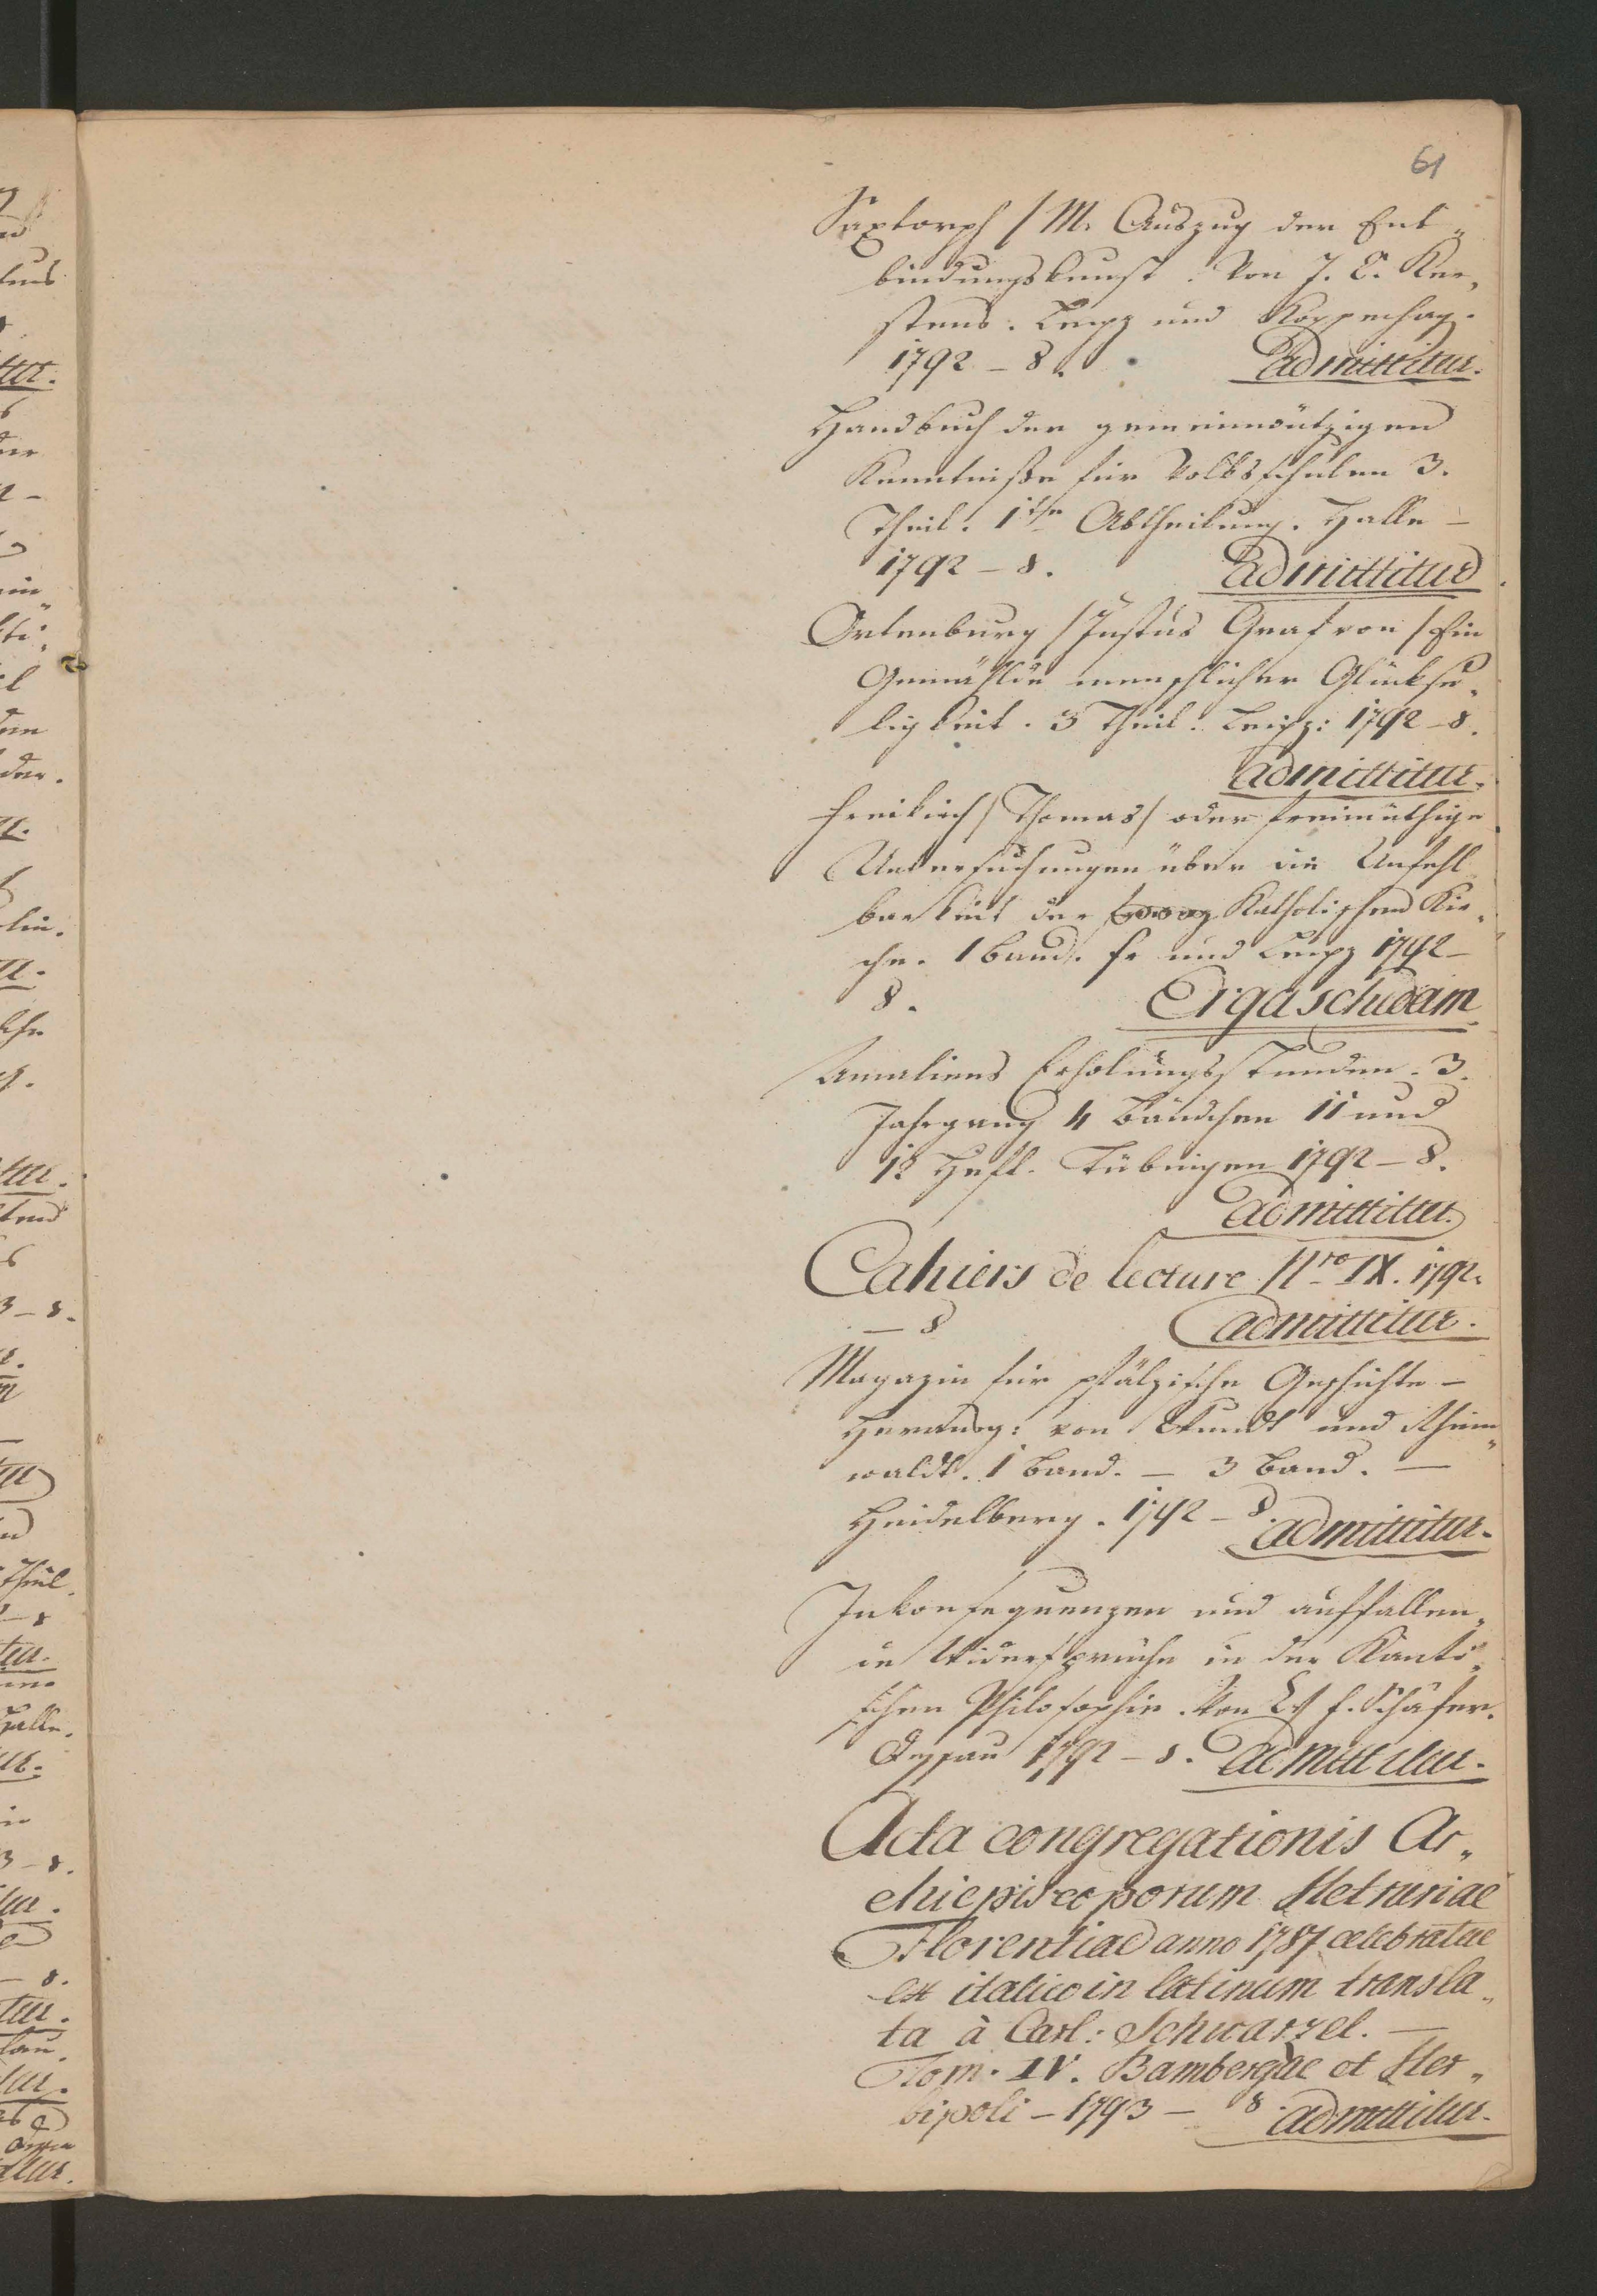 61
Saxtorph /M. Auszug der Ent„
bindungskunst. Von J. C. Ker„
stens. Leipz und Koppenhag.
1792 – 8. Admittitur.
Handbuch der gemeinnützigen
Kenntniße für Volksschulen 3.
Theil. 1te Abtheilung. Halle –
1792 – 8. Admittitur
Ortenburg /Justus Graf von / Ein
Gemählde menschlicher Glückse„
ligkeit. 3 Theil. Leipz: 1792 – 8.
admittitur.
Freikirch /Thomas/ oder freimüthige
Untersuchungen über die Unfehl
barkeit der Katholischen Kir„
che. 1 Band. Fr und Leipz 1792 –
8. Erga schedam
Amaliens Erholungsstunden. 3.
Jahrgang 4 Bändchen 11 und
12 Heft. Tübingen 1792 – 8.
admittitur.
Cahiers de lecture Nro IX. 1792.
– 8 admittitur.
Magazin für pfälzische Geschichte –
Herausg: von Wundt und Rhein„
waldt. 1 Band. – 3 Band. –
Heidelberg. 1792 – 8. admittitur.
Inkonsequenzen und auffallen„
de Widersprüche in der Kanti„
schen Philosophie. Von F. Schäfer.
Dessau 1792 – 8. admittitur.
Acta congregationis Ar„
chiepiscoporum Hetruriae
Florentiae anno 1787 celebratae
ex italico in latinum transla„
ta à Carl: Schwarzel. –
Tom. IV. Bambergae et Her„
bipoli – 1793 – 8. admittitur.